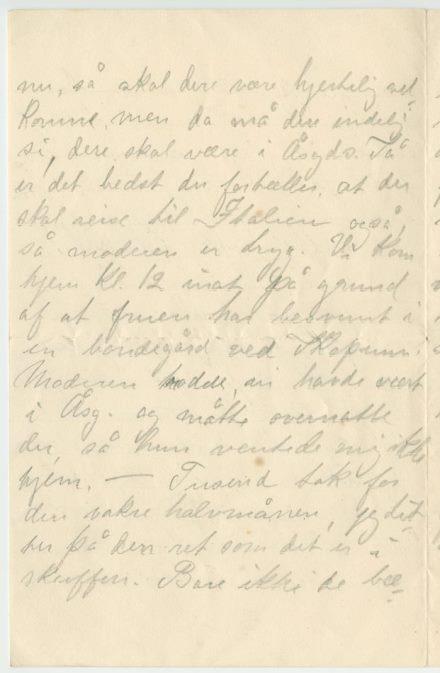 nu, så skal dere være hjertelig vel-
komne, men da må dere endelig
si, dere skal være i Åsgds. Så
er det bedst du fortæller, at du
skal reise til Italien også,
så moderen er tryg. Vi kom
hjem Kl. 12 inat på grund
af at fruen har besvimt i
en bondegård ved
Moderen trodde, vi havde vært
i Åsg. og måtte overnatte
der, så hun ventede mig ikke
hjem. — Tusend tak for
den vakre halvmånen, jeg
på den ret som det er i
skuffen. Bare ikke de be-